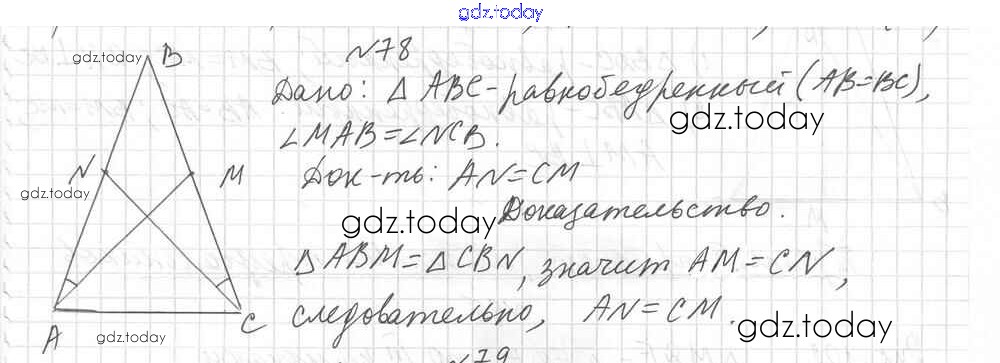 gdz.today
№78
gdz.today B
Дано: △ ABC - равнобедренный (AB=BC),
gdz.today
∠MAB=∠NCB.
N M
Док-ть: AN=CM
gdz.today
gdz.today Доказательство.
△ ABM=△CBN, значит AM=CN,
следовательно, AN=CM.
A C
gdz.today gdz.today
№79